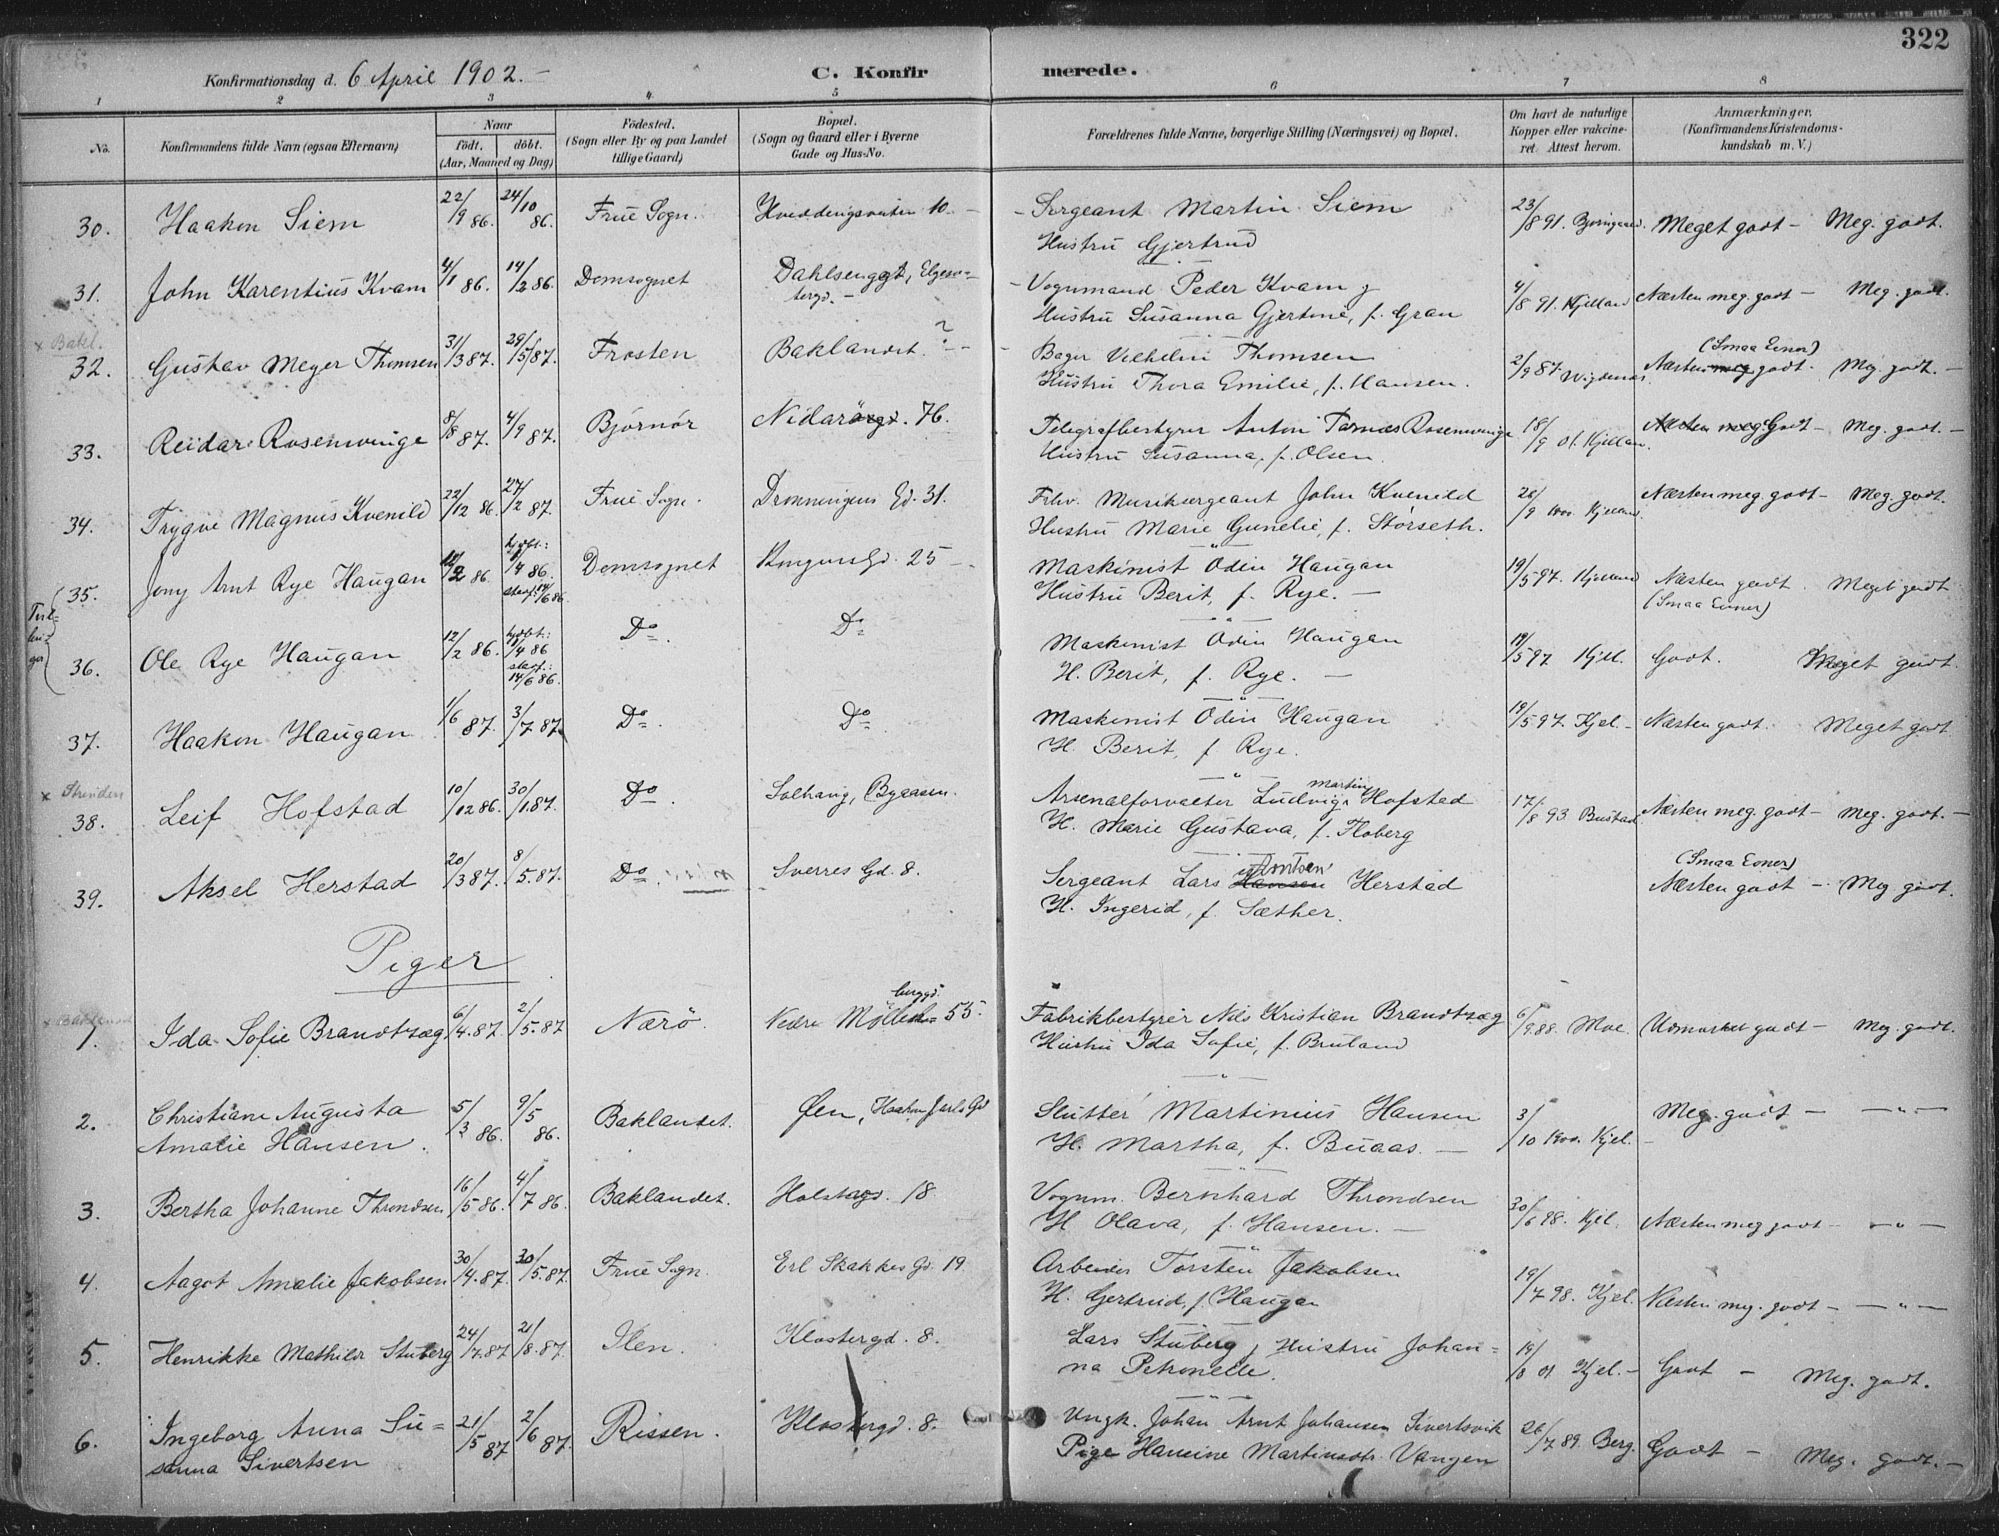 322
Konfirmationsdag d. 6 April 1902. –
C. Konfirmerede.
1 2 3 4 5 6 7 8
No.
Konfirmandens fulde Navn (ogsaa Efternavn)
Naar
født. døbt.
(Aar, Maaned og Dag)
Fødested.
(Sogn eller By og paa Landet
tillige Gaard)
Bopæl.
(Sogn og Gaard eller i Byerne
Gade og Hus-No.
Forældrenes fulde Navne, borgerlige Stilling (Næringsvei) og Bopæl.
Om havt de naturlige
Kopper eller vakcine-
ret. Attest herom.
Anmærkninger.
(Konfirmandens Kristendoms-
kundskab m. V.)
30. Haakon Siem 22/9 86. 24/10 86. Frue Sogn. 10. – Sergeant Martin Siem 23/8 91. Meget godt – Meg. godt.
Hustru Gjertrud
31. John Karentius Kvam 4/1 86. 14/2 86. Domsognet Vognmand Peder Kvam 4/8 91. Kjelland Næsten meg. godt – Meg. godt.
Hustru Susanna Gjertine, f. Gran
x Bakl.
32. Gustav Meyer Thomsen 31/3 87. 29/5 87. Frosten Baklandet. ? – Bager Vilhelm Thomsen 2/9 87. (Smaa Evner)
Hustru Thora Emilie, f. Hansen. Næsten meg. godt. Meg. godt. –
33. Reidar Rosenvinge 8/8 87. 4/9 87. Bjørnør Nidaröxgt. 76. Telegrafbestyrer Anton Rosenvinge 18/9 01. Kjelland Næsten meg. Godt – Meg. godt. –
Hustru Susanna, f. Olsen.
34. Trygve Magnus Kvenild 22/12 86. 27/2 87. Frue Sogn. Dronningens Gd. 31. Frhv. Musiksergeant John Kvenild 26/9 1900. Kjelland. Næsten meg. godt – Meg. godt.
Hustru Marie Gunelie, f. Störseth.
Tvil-
lin-
ger
35. Jony Arnt Rye Haugan 12/2 86. hjdbt.: 1/4 86. stadf. 14/6 86. Domsognet Kongens Gd. 25 – Maskinist Odin Haugan 19/5 97. Kjelland Næsten godt. Meget godt
Hustru Berit, f. Rye. – (Smaa Evner)
36. Ole Rye Haugan 12/2 86. hjdbt.: 1/4 86 stadf.: 14/6 86. Do. Do Maskinist Odin Haugan 19/5 97 Kjell. Godt. Meget godt.
H. Berit, f. Rye. –
37. Haakon Haugan 1/6 87. 3/7 87. Do. Do Maskinist Odin Haugan 19/5 97. Kjel. – Næsten godt. Meget godt
H. Berit, f. Rye.
x Strinden
38. Leif Hofstad 10/12 86. 30/1 87. Do. Solhaug, Byaasen. Arsenalforvalter Ludvig Martin Hofstad 17/8 93. Bustad Næsten meg. godt – Meg. godt. –
H. Marie Gustava, f. Floberg
39. Aksel Herstad 20/3 87. 8/5. 87. Do. Sverres Gd. 8. Sergeant Lars Hansen Arntsen Herstad (Smaa Evner)
H. Ingerid, f. Sæther. Næsten godt – Meg. godt.
Piger
x Baklandet
1. Ida Sofie Brandtzæg 6/4. 87. 2/5. 87 Nærö. Nedre Møllenberggd. 55. Fabrikbestyrer Nils Kristian Brandtzæg 6/9 88. Moe. Udmærket godt – Meg. godt.
Hustru Ida Sofie, f. Bruland
2. Christiane Augusta 5/3 86. 9/5 86. Baklandet. Øen, Haakon Jarls Gd Slutter Martinius Hansen 3/10 1900. Kjel. – Meg. godt – – " –
Amalie Hansen. H. Martha, f. Buaas. –
3. Bertha Johanne Throndsen 16/5 86. 4/7 86. Baklandet. 18. Vognm. Bernhard Throndsen 30/6 98. Kjel. Næsten meg godt – – " –
H. Olava, f. Hansen. –
4. Aagot Amalie Jakobsen 30/4. 87. 30/5. 87. Frue Sogn. Erl. Skakkes Gd. 19. Arbeider Torsten Jakobsen 19/7 98. Kjel. Næsten meg. godt – – " –
H. Gertrud, f. Haugan
5. Henrikke Mathilde Stuberg 24/7. 87. 21/8. 87. Ilen. Klostergd. 8. Lars Stuberg, Hustru Johan- 19/8 01. Kjel. – Godt – Meg. godt.
na Petronelle.
6. Ingeborg Anna Su- 21/5 87 2/6 87. Rissen. Klostergd. 8. Ungk. Johan Arnt Johansen Sivertsvik 26/7 89. Berg. Godt – Meg. godt. –
sanna Sivertsen Pige Hansine Martinusdtr. Vangen